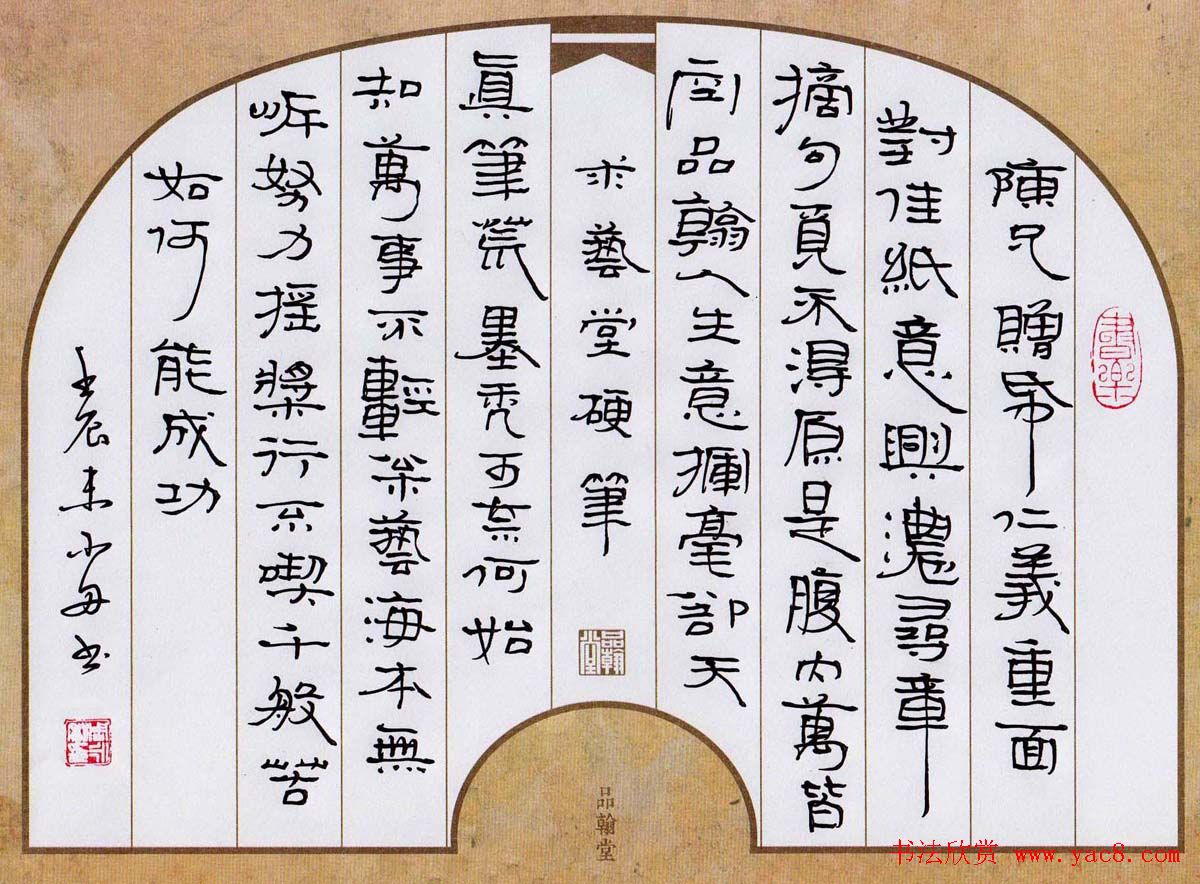 陳兄贈帋仁義重面
對佳紙意興濃尋章
摘句覓不得原是腹内萬皆
空品翰人生意揮毫卻天
求藝堂硬筆
眞筆荒墨秃可奈何始
知萬事不輕枀藝海本無
岸努力摇槳行不喫千般苦
如何能成功
壬辰末小书
品翰堂
书法欣赏 www.yac8.com